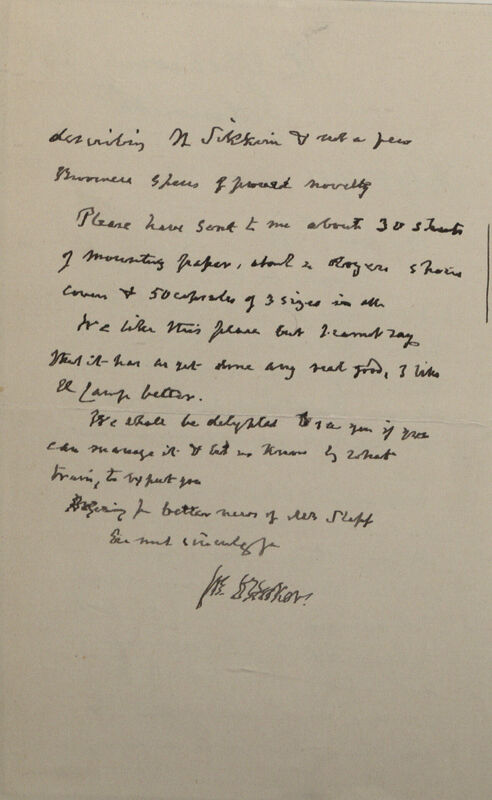 describing N Sikkim & not a few
Burmese species of proved novelty
Please have sent to me about 30 sheets
of mounting paper, about 2 dozen species
covers & 50 capsules of 3 sizes in all
We like this place but I cannot say
that it has as yet done any real good, I like
the Camp better.
We shall be delighted to see you if you
can manage it & let us know by what
train, to expect you
Hoping for better news of Mrs Stapf
Ever most sincerely yrs
J D Hooker.